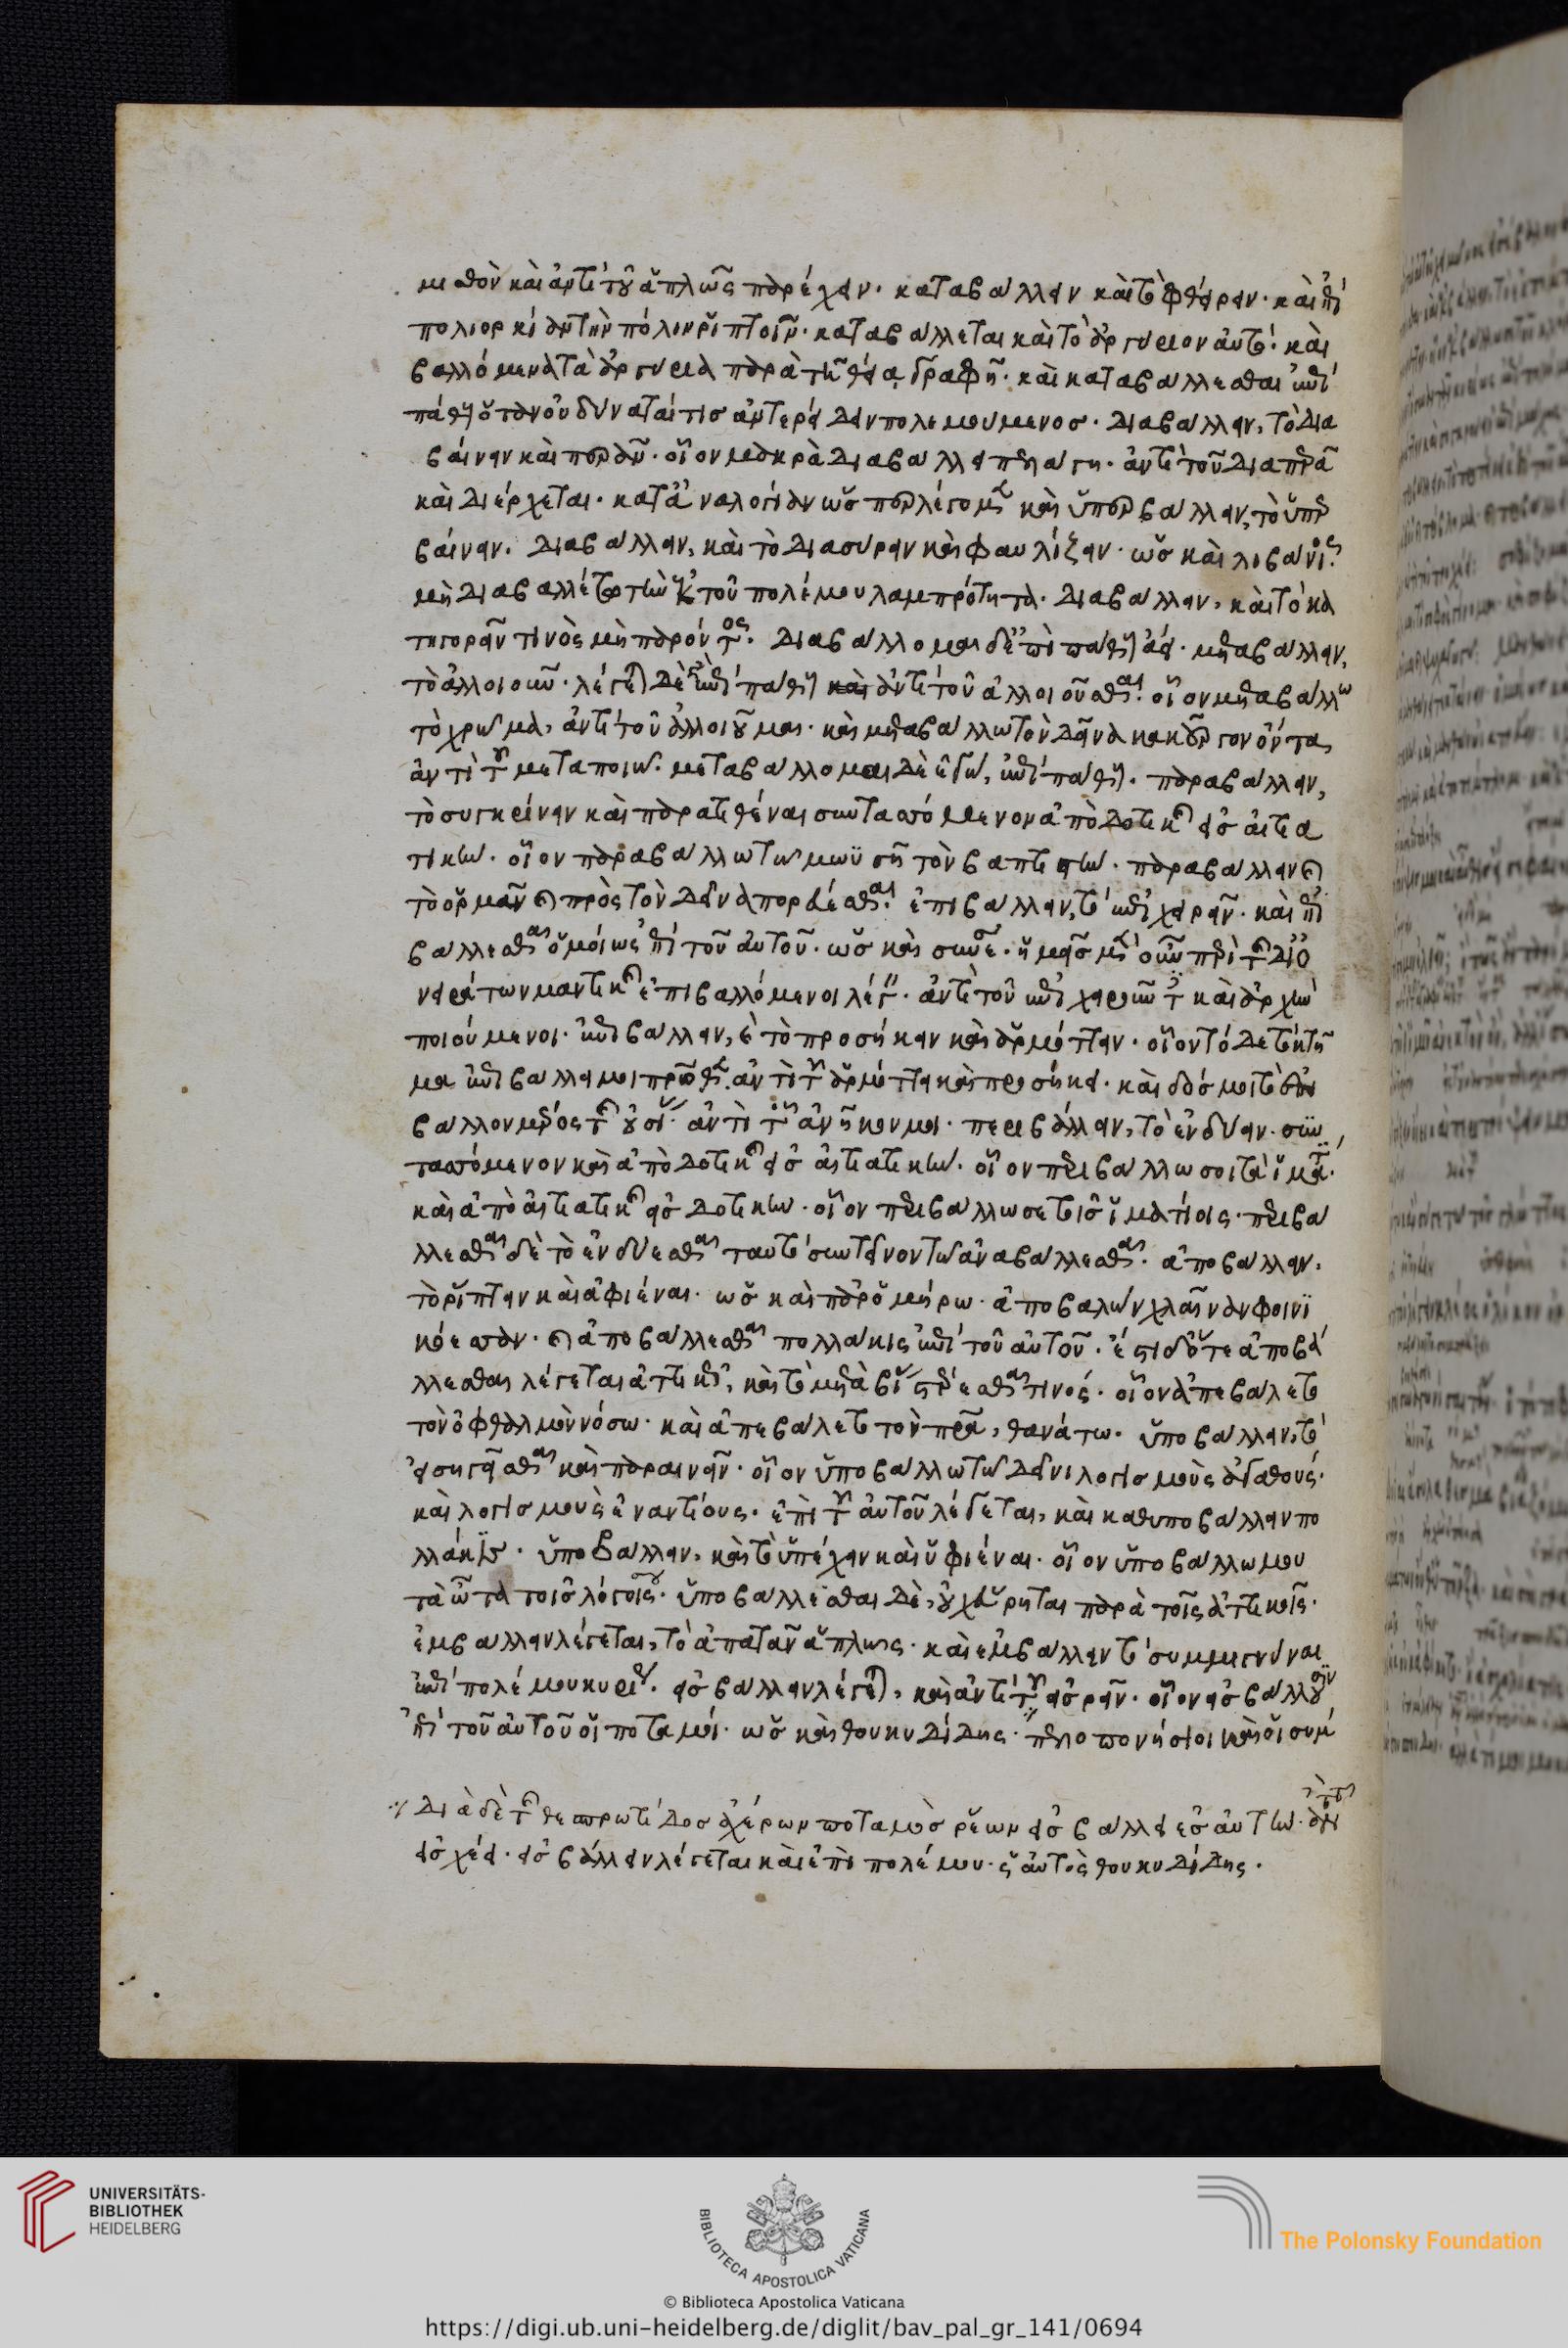 μισθὸν καὶ ἀντὶ τοῦ ἁπλῶς παρέχειν. καταβάλλειν καὶ τὸ φθείρειν. καὶ ἐπὶ
πολιορκίας τὴν πόλιν ῥίπτουν. καταβάλλεται καὶ τὸ ἀργύριον αὐτό. καὶ
βαλλόμενα τὰ ἀργύρια παρὰ τῆ θεία γραφῆ. καὶ καταβάλλεσθαι ἐπὶ
πάθη ὅταν οὐ δύναταί τισ ἀντερείδειν πολεμούμενοσ. διαβάλλειν, τὸ δια
βαίνειν καὶ περᾶν. οἷον μακρὰ διαβάλλει πελάγη. ἀντὶ τοῦ διαπερᾶ
καὶ διέρχεται. κατὰ ἀναλογίαν ὥσπερ λέγομεν καὶ ὑπερβάλλειν, τὸ ὑπερ
βαίνειν. διαβάλλειν, καὶ τὸ διασύρειν καὶ φαυλίζειν. ὡσ καὶ λιβάνιος.
μὴ διαβαλλέτω τὴν ἐκ τοῦ πολέμου λαμπρότητα. διαβάλλειν, καὶ τὸ κα
τηγορεῖν τινὸς μὴ παρόντος. διαβάλλομαι δὲ ἐπὶ πάθη ἀεί. μεταβάλλειν,
τὸ ἀλλοιοῦν. λέγεται δὲ ἐπὶ πάθη καὶ ἀντὶ τοῦ ἀλλοιοῦσθαι. οἷον μεταβάλλω
τὸ χρῶμα, ἀντὶ τοῦ ἀλλοιοῦμαι. καὶ μεταβάλλω τὸν δεῖνα κακοῦργον ὄντα,
ἀντὶ τοῦ μεταποιῶ. μεταβάλλομαι δὲ ἐγὼ, ἐπὶ πάθη. παραβάλλειν,
τὸ συγκρίνειν καὶ παρατιθέναι συντασσόμενον ἀπὸ δοτικῆς εἰσ αἰτια
τικὴν. οἷον παραβάλλω τῶ μωϋσῆ τὸν βαπτιστὴν. παραβάλλειν
τὸ ὁρμᾶν πρὸς τὸν δεῖνα πορεύεσθαι. ἐπιβάλλειν, τὸ ἐπιχειρεῖν. καὶ ἐπι
βάλλεσθαι ὁμοίως ἐπὶ τοῦ αὐτοῦ. ὡσ καὶ συνέσιος. ἡμεῖσ μὲν οὖν περὶ τῆς δι᾽ ὀ
νειράτων μαντικῆς ἐπιβαλλόμενοι λέγειν. ἀντὶ τοῦ ἐπιχειροῦντες καὶ ἀρχὴν
ποιούμενοι. ἐπιβάλλειν, τὸ προσήκειν καὶ ἁρμόττειν. οἷον τόδε τὸ κτῆ
μα ἐπιβάλλει μοι πατρόθεν. ἀντὶ τοῦ ἁρμόττει καὶ προσήκει. καὶ δόσ μοι τὸ ἐπι
βάλλον μέρος τῆς οὐσίας. ἀντὶ τοῦ ἀνῆκον μοι. περιβάλλειν, τὸ ἐνδύειν. συν
τασσόμενον καὶ ἀπὸ δοτικῆς εἰσ αἰτιατικὴν. οἷον περιβάλλω σοι τὰ ἱμάτια.
καὶ ἀπὸ αἰτιατικῆς εἰσ δοτικὴν. οἷον περιβάλλω σε τοῖσ ἱματίοις. περιβά
λλεσθαι δὲ τὸ ἐνδύεσθαι ταυτὸ σημαῖνον τῶ ἀναβάλλεσθαι. ἀποβάλλειν.
τὸ ῥίπτειν καὶ ἀφιέναι. ὡσ καὶ παρ᾽ ὁμήρω. ἀποβαλὼν χλαῖναν φοινι
κόεσσαν. ἀποβάλλεσθαι πολλάκις ἐπὶ τοῦ αὐτοῦ. ἔστι δ᾽ ὅτε ἀποβά
λλεσθαι λέγεται ἀττικοὶ, καὶ τὸ μετὰ βίας στερεῖσθαι τινός. οἷον ἀπεβάλετο
τὸν ὀφθαλμὸν νόσω. καὶ ἀπεβάλετο τὸν πατέρα, θανάτω. ὑποβάλλειν, τὸ
εἰσηγεῖσθαι καὶ παραινεῖν. οἷον ὑποβάλλω τῶ δεῖνι λογισμοὺς ἀγαθούς.
καὶ λογισμοὺς ἐναντίους. ἐπὶ τοῦ αὐτοῦ λέγεται, καὶ καθυποβάλλειν πο
λλάκις. ὑποβάλλειν, καὶ τὸ ὑπέχειν καὶ ὑφιέναι. οἷον ὑποβάλλω μου
τὰ ὦτα τοῖσ λόγοις σου. ὑποβάλλεσθαι δὲ, οὐχ εὕρηται παρὰ τοῖς ἀττικοῖς.
ἐμβάλλειν λέγεται, τὸ ἀπατᾶν ἁπλῶς. καὶ ἐμβάλλειν τὸ συμμιγνύναι
ἐπὶ πολέμου κυρίως. εἰσβάλλειν λέγεται, καὶ ἀντὶ τοῦ εἰσρεῖν. οἷον εἰσβάλλουσιν
ἐπὶ τοῦ αὐτοῦ οἱ ποταμοί. ὡσ καὶ θουκυδίδης. πελοποννήσιοι καὶ οἱ σύμ
διὰ δὲ τῆς θεσπρωτίδοσ ἀχέρων ποταμὸσ ῥέων εἰσβάλλει ἐσ αὐτὴν. ἀντὶ τοῦ
εἰσχεῖ. εἰσβάλλειν λέγεται καὶ ἐπὶ πολέμου. ὡς αὐτὸς θουκυδίδης.
UNIVERSITÄTS-
BIBLIOTHEK
HEIDELBERG
BIBLIOTECA APOSTOLICA VATICANA
The Polonsky Foundation
© Biblioteca Apostolica Vaticana
https://digi.ub.uni-heidelberg.de/diglit/bav_pal_gr_141/0694